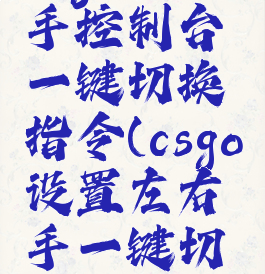 手控制台
一键切换
指令(csgo
设置左右
手一键切